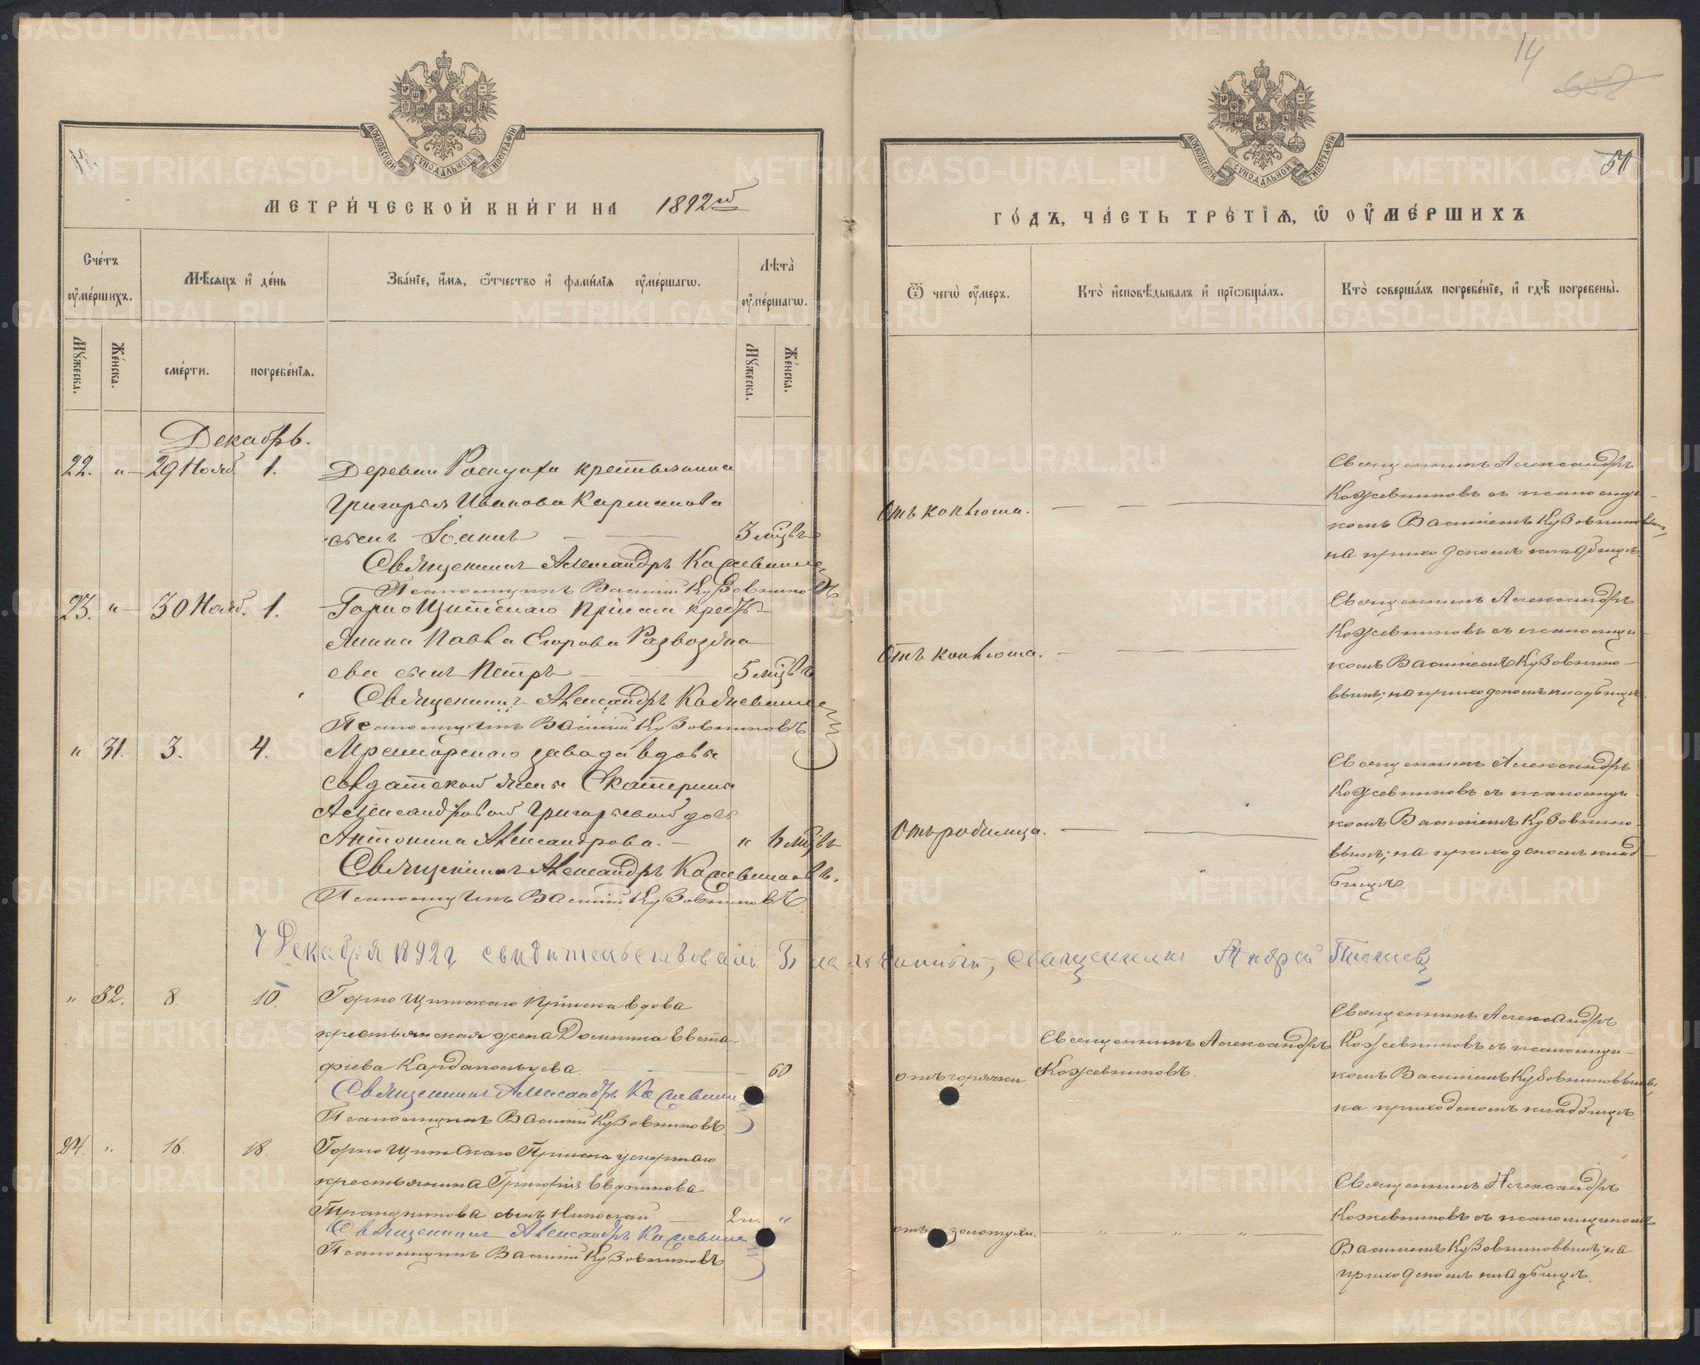 МЕТРИ́ЧЕСКОЙ КНИ́ГИ НА 1892й
Сче́тъ оу҆ме́ршихъ.
Мѣ́сяцъ и҆ де́нь
Зва́нїе, и҆́мя, ѻ҆́тчество и҆ фами́лїя оу҆ме́ршагѡ.
Лѣ́та оу҆ме́ршагѡ.
Му́жеска.
Же́нска.
сме́рти.
погребе́нїя.
Му́жеска.
Же́нска.
Декабрь.
22. " 29 Нояб. 1. Деревни Роскуиха крестьянина
Григорья Иванова Карманова
сынъ Іоаннъ 3 мцвъ
Священникъ Александръ Кожевниковъ
Псаломщикъ Василій Кузовниковъ
23. " 30 Нояб. 1. Горно Щитскаго Пріиска кресть-
янина Павла Егорова
ева сынъ Петръ 5 мцвъ
Священникъ Александръ Кожевниковъ
Псаломщикъ Василій Кузовниковъ
" 31. 3. 4. Мраморскаго завода вдовы
солдатской жены Екатерины
Александровой Григорьевой дочь
Антонина Александрова. " 6 мцвъ
Священникъ Александръ Кожевниковъ.
Псаломщикъ Василій Кузовниковъ
7 Декабря 1892 г свидѣтельствовалъ Благочинный, священникъ Андрей
" 32. 8. 10. Горно Щитскаго Пріиска вдова
крестьянская жена Домника Евста-
фіева 60
Священникъ Александръ Кожевниковъ
Псаломщикъ Василій Кузовниковъ
24. " 16. 18. Горно Щитскаго Пріиска умершаго
крестьянина Григорія Евдокимова
сынъ Николай 2 м. "
Священникъ Александръ Кожевниковъ
Псаломщикъ Василій Кузовниковъ
14
608
50
МОСКОВСКОЙ СѴНОДАЛЬНОЙ ТИПОГРАФІИ
ГО́ДЪ, ЧА́СТЬ ТРЕ́ТЇЯ, Ѡ҆ ОУ҆МЕ́РШИХЪ
Ѿ чегѡ̀ оу҆́меръ.
Кто̀ и҆сповѣ́дывалъ и҆ прїѡбща́лъ.
Кто̀ соверша́лъ погребе́нїе, и҆ гдѣ̀ погребены̀.
Отъ коклюша.
Священникъ Александръ
Кожевниковъ съ псаломщи-
комъ Василіемъ Кузовниковымъ,
на приходскомъ кладбищѣ
Отъ коклюша.
Священникъ Александръ
Кожевниковъ съ псаломщи-
комъ Василіемъ Кузовнико-
вымъ; на приходскомъ кладбищѣ
Отъ родимца.
Священникъ Александръ
Кожевниковъ съ псаломщи-
комъ Василіемъ Кузовнико-
вымъ; на приходскомъ клад-
бищѣ.
отъ горячки
Священникъ Александръ
Кожевниковъ.
Священникъ Александръ
Кожевниковъ съ псаломщи-
комъ Василіемъ Кузовниковымъ,
на приходскомъ кладбищѣ.
отъ золотухи.
Священникъ Александръ
Кожевниковъ съ псаломщикомъ
Василіемъ Кузовниковымъ; на
приходскомъ кладбищѣ.
METRIKI.GASO-URAL.RU